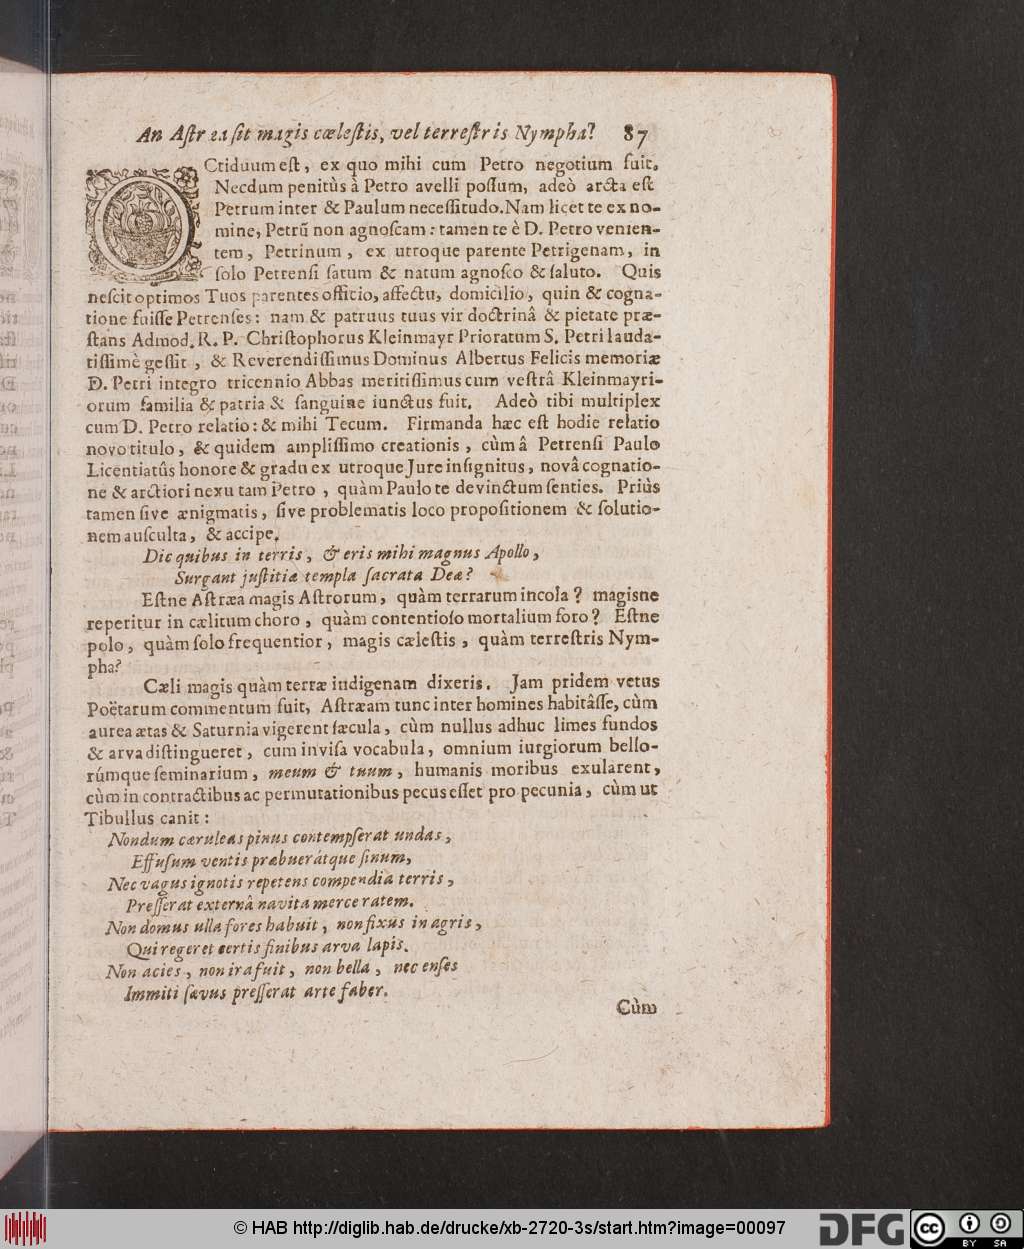 An Astræa sit magis cælestis, vel terrestris Nympha? 87
OCtiduum est, ex quo mihi cum Petro negotium fuit.
Necdum penitùs à Petro avelli possum, adeò arcta est
Petrum inter & Paulum necessitudo. Nam licet te ex no-
mine, Petrũ non agnoscam: tamen te è D. Petro venien-
tem, Petrinum, ex utroque parente Petrigenam, in
solo Petrensi satum & natum agnosco & saluto. Quis
nescit optimos Tuos parentes officio, affectu, domicilio, quin & cogna-
tione fuisse Petrenses: nam & patruus tuus vir doctrinâ & pietate præ-
stans Admod. R. P. Christophorus Kleinmayr Prioratum S. Petri lauda-
tissimè gessit, & Reverendissimus Dominus Albertus Felicis memoriæ
D. Petri integro tricennio Abbas meritissimus cum vestrâ Kleinmayri-
orum familia & patria & sanguine iunctus fuit. Adeò tibi multiplex
cum D. Petro relatio: & mihi Tecum. Firmanda hæc est hodie relatio
novo titulo, & quidem amplissimo creationis, cùm â Petrensi Paulo
Licentiatûs honore & gradu ex utroque Jure insignitus, novâ cognatio-
ne & arctiori nexu tam Petro, quàm Paulo te devinctum senties. Priùs
tamen sive ænigmatis, sive problematis loco propositionem & solutio-
nem ausculta, & accipe.
Dic quibus in terris, & eris mihi magnus Apollo,
Surgant justitiæ templa sacrata Deæ?
Estne Astræa magis Astrorum, quàm terrarum incola? magisne
reperitur in cælitum choro, quàm contentioso mortalium foro? Estne
polo, quàm solo frequentior, magis cælestis, quàm terrestris Nym-
pha?
Cæli magis quàm terræ indigenam dixeris. Jam pridem vetus
Poëtarum commentum fuit, Astræam tunc inter homines habitâsse, cùm
aurea ætas & Saturnia vigerent sæcula, cùm nullus adhuc limes fundos
& arva distingueret, cum invisa vocabula, omnium iurgiorum bello-
rúmque seminarium, meum & tuum, humanis moribus exularent,
cùm in contractibus ac permutationibus pecus esset pro pecunia, cùm ut
Tibullus canit:
Nondum cæruleas pinus contempserat undas,
Effusum ventis præbuerátque sinum,
Nec vagus ignotis repetens compendia terris,
Presserat externâ navita merce ratem.
Non domus ulla fores habuit, non fixus in agris,
Qui regeret certis finibus arva lapis.
Non acies, non ira fuit, non bella, nec enses
Immiti sævus presserat arte faber.
Cùm
© HAB http://diglib.hab.de/drucke/xb-2720-3s/start.htm?image=00097
DFG
cc BY SA